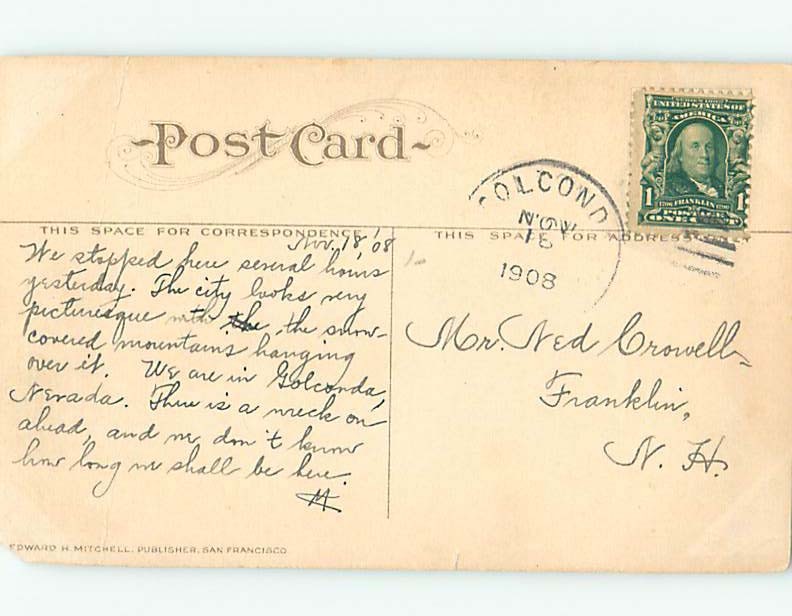 Post Card
UNITED STATES OF
AMERICA
1 FRANKLIN 1
ONE CENT
GOLCOND
NOV
18
1908
THIS SPACE FOR CORRESPONDENCE
THIS SPACE FOR ADDRESS ONLY
Nov. 18, '08
We stopped here several hours
yesterday. The city looks very
picturesque with the the snow-
covered mountains hanging
over it. We are in Golconda,
Nevada. There is a wreck on
ahead, and we don't know
how long we shall be here.
M
Mr. Ned Crowell,
Franklin,
N. H.
EDWARD H. MITCHELL, PUBLISHER, SAN FRANCISCO